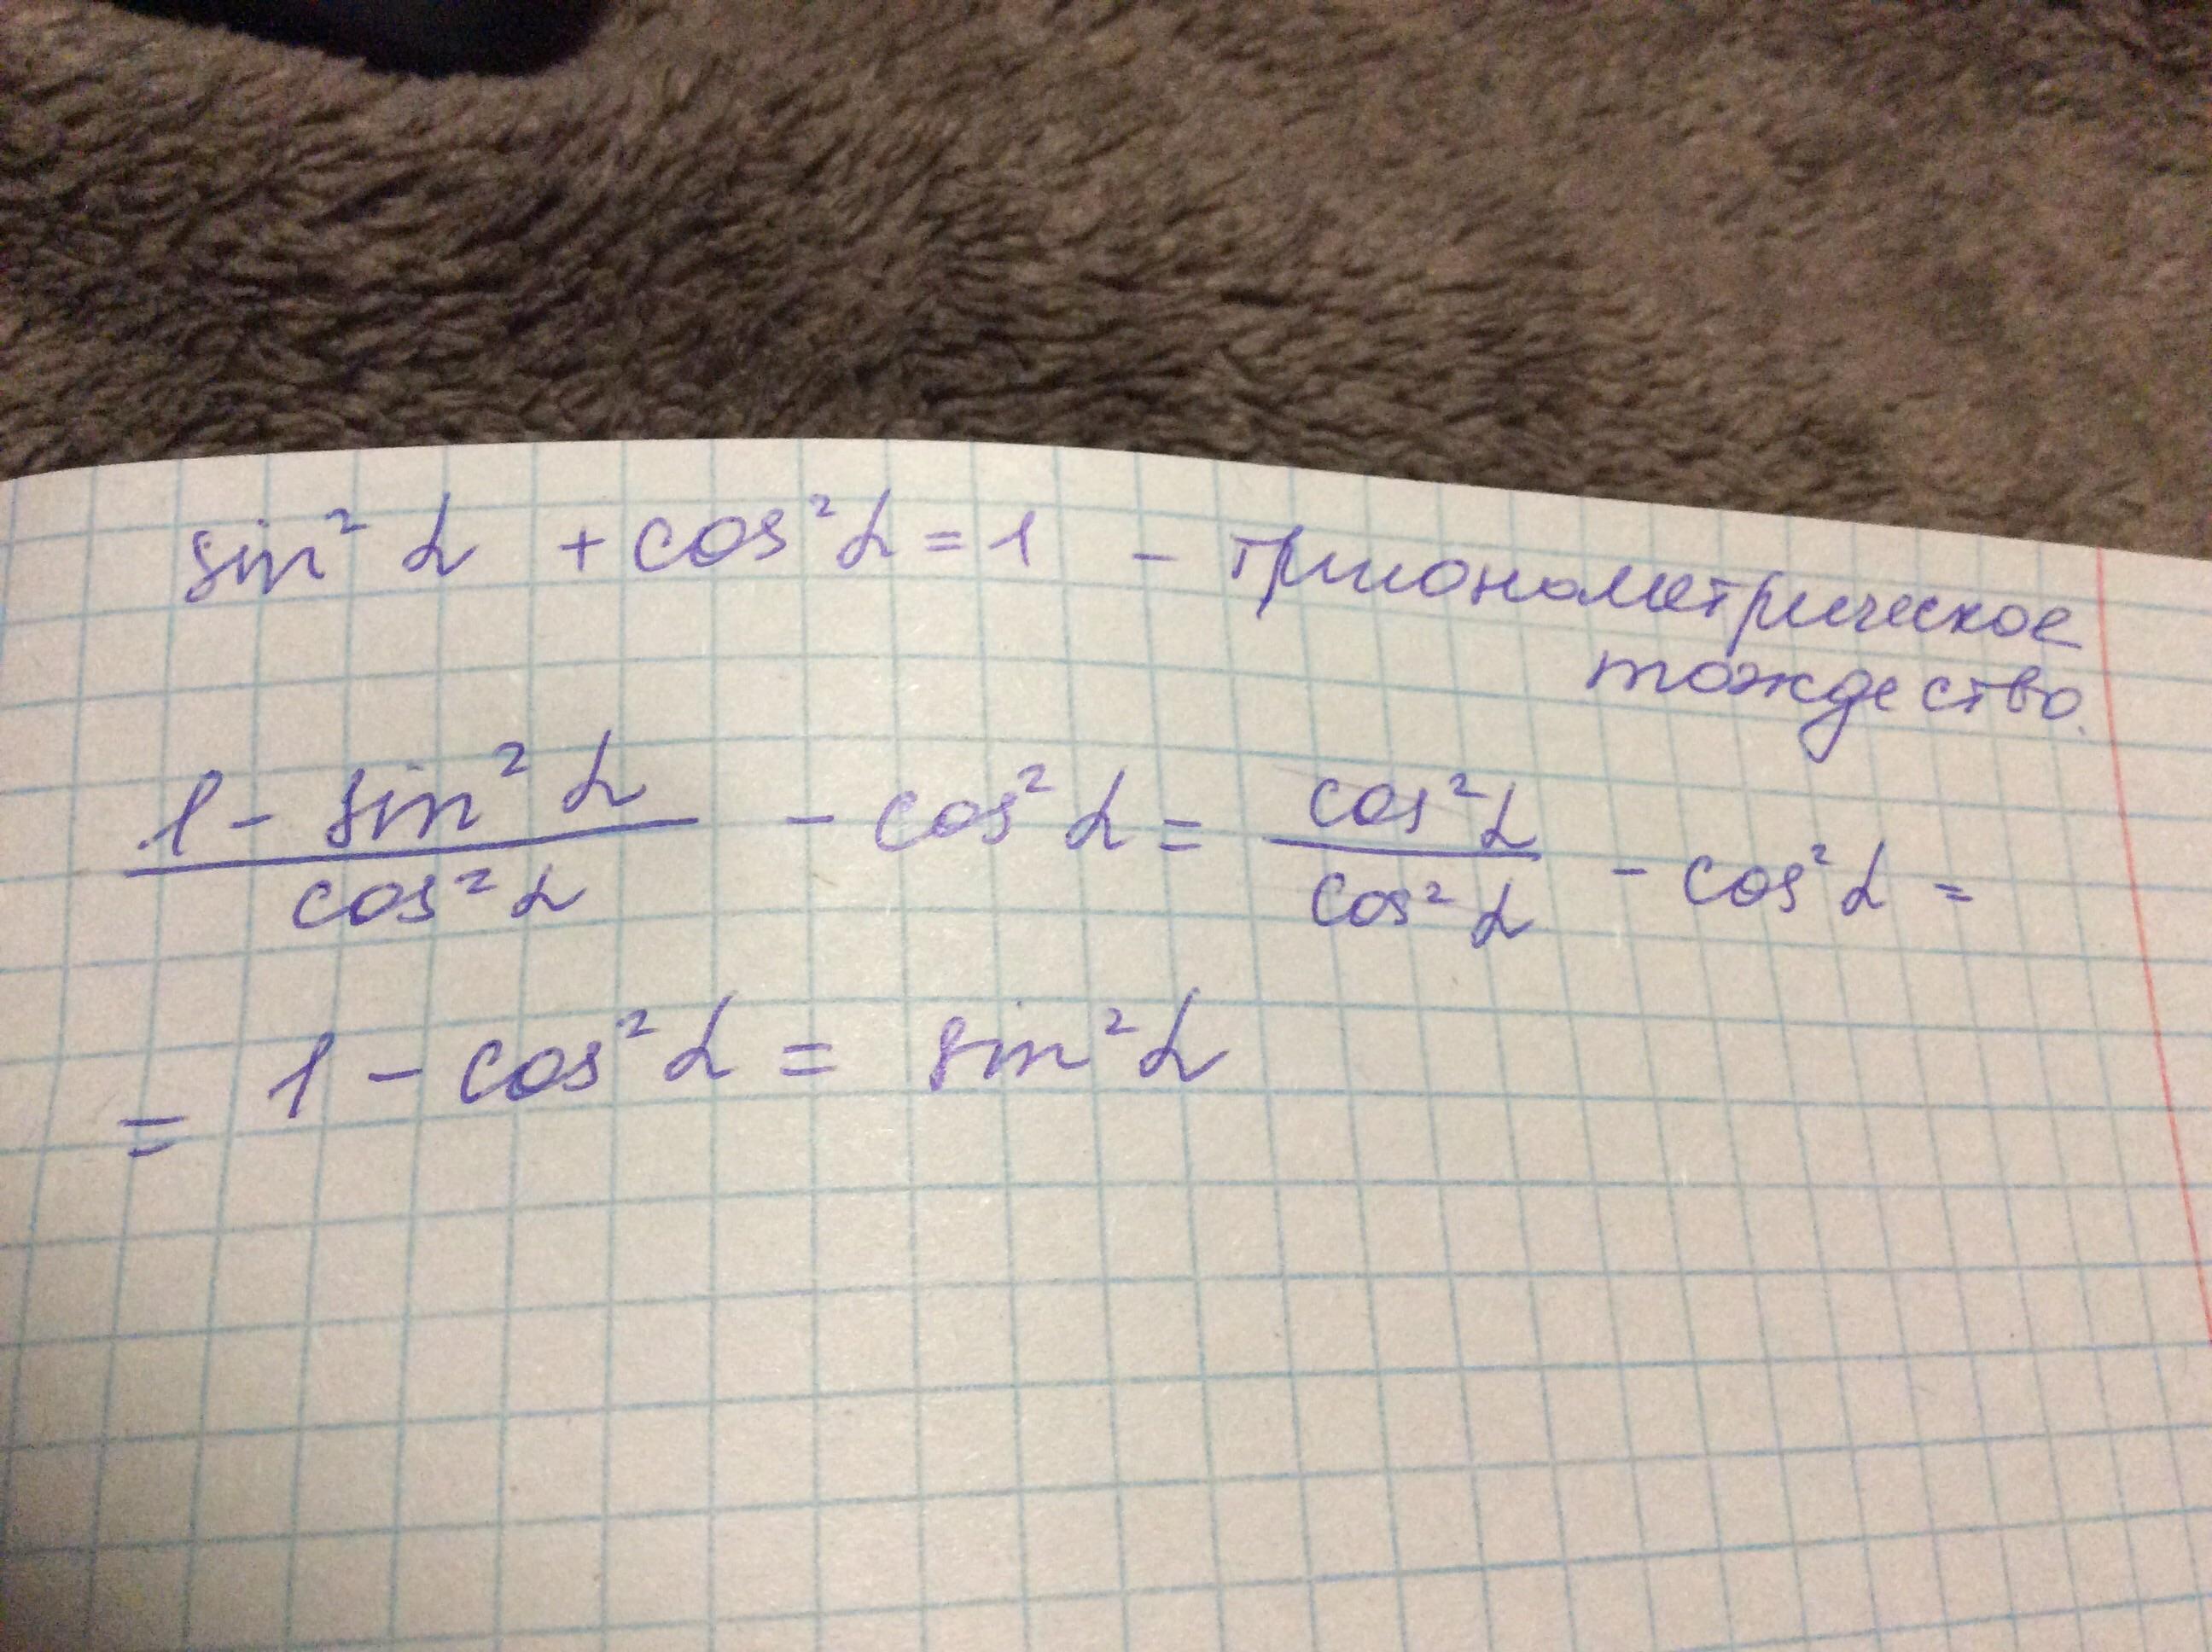 sin² α + cos² α = 1 - тригонометрическое
тождество.
(1 - sin² α)/(cos² α) - cos² α = (cos² α)/(cos² α) - cos² α =
= 1 - cos² α = sin² α